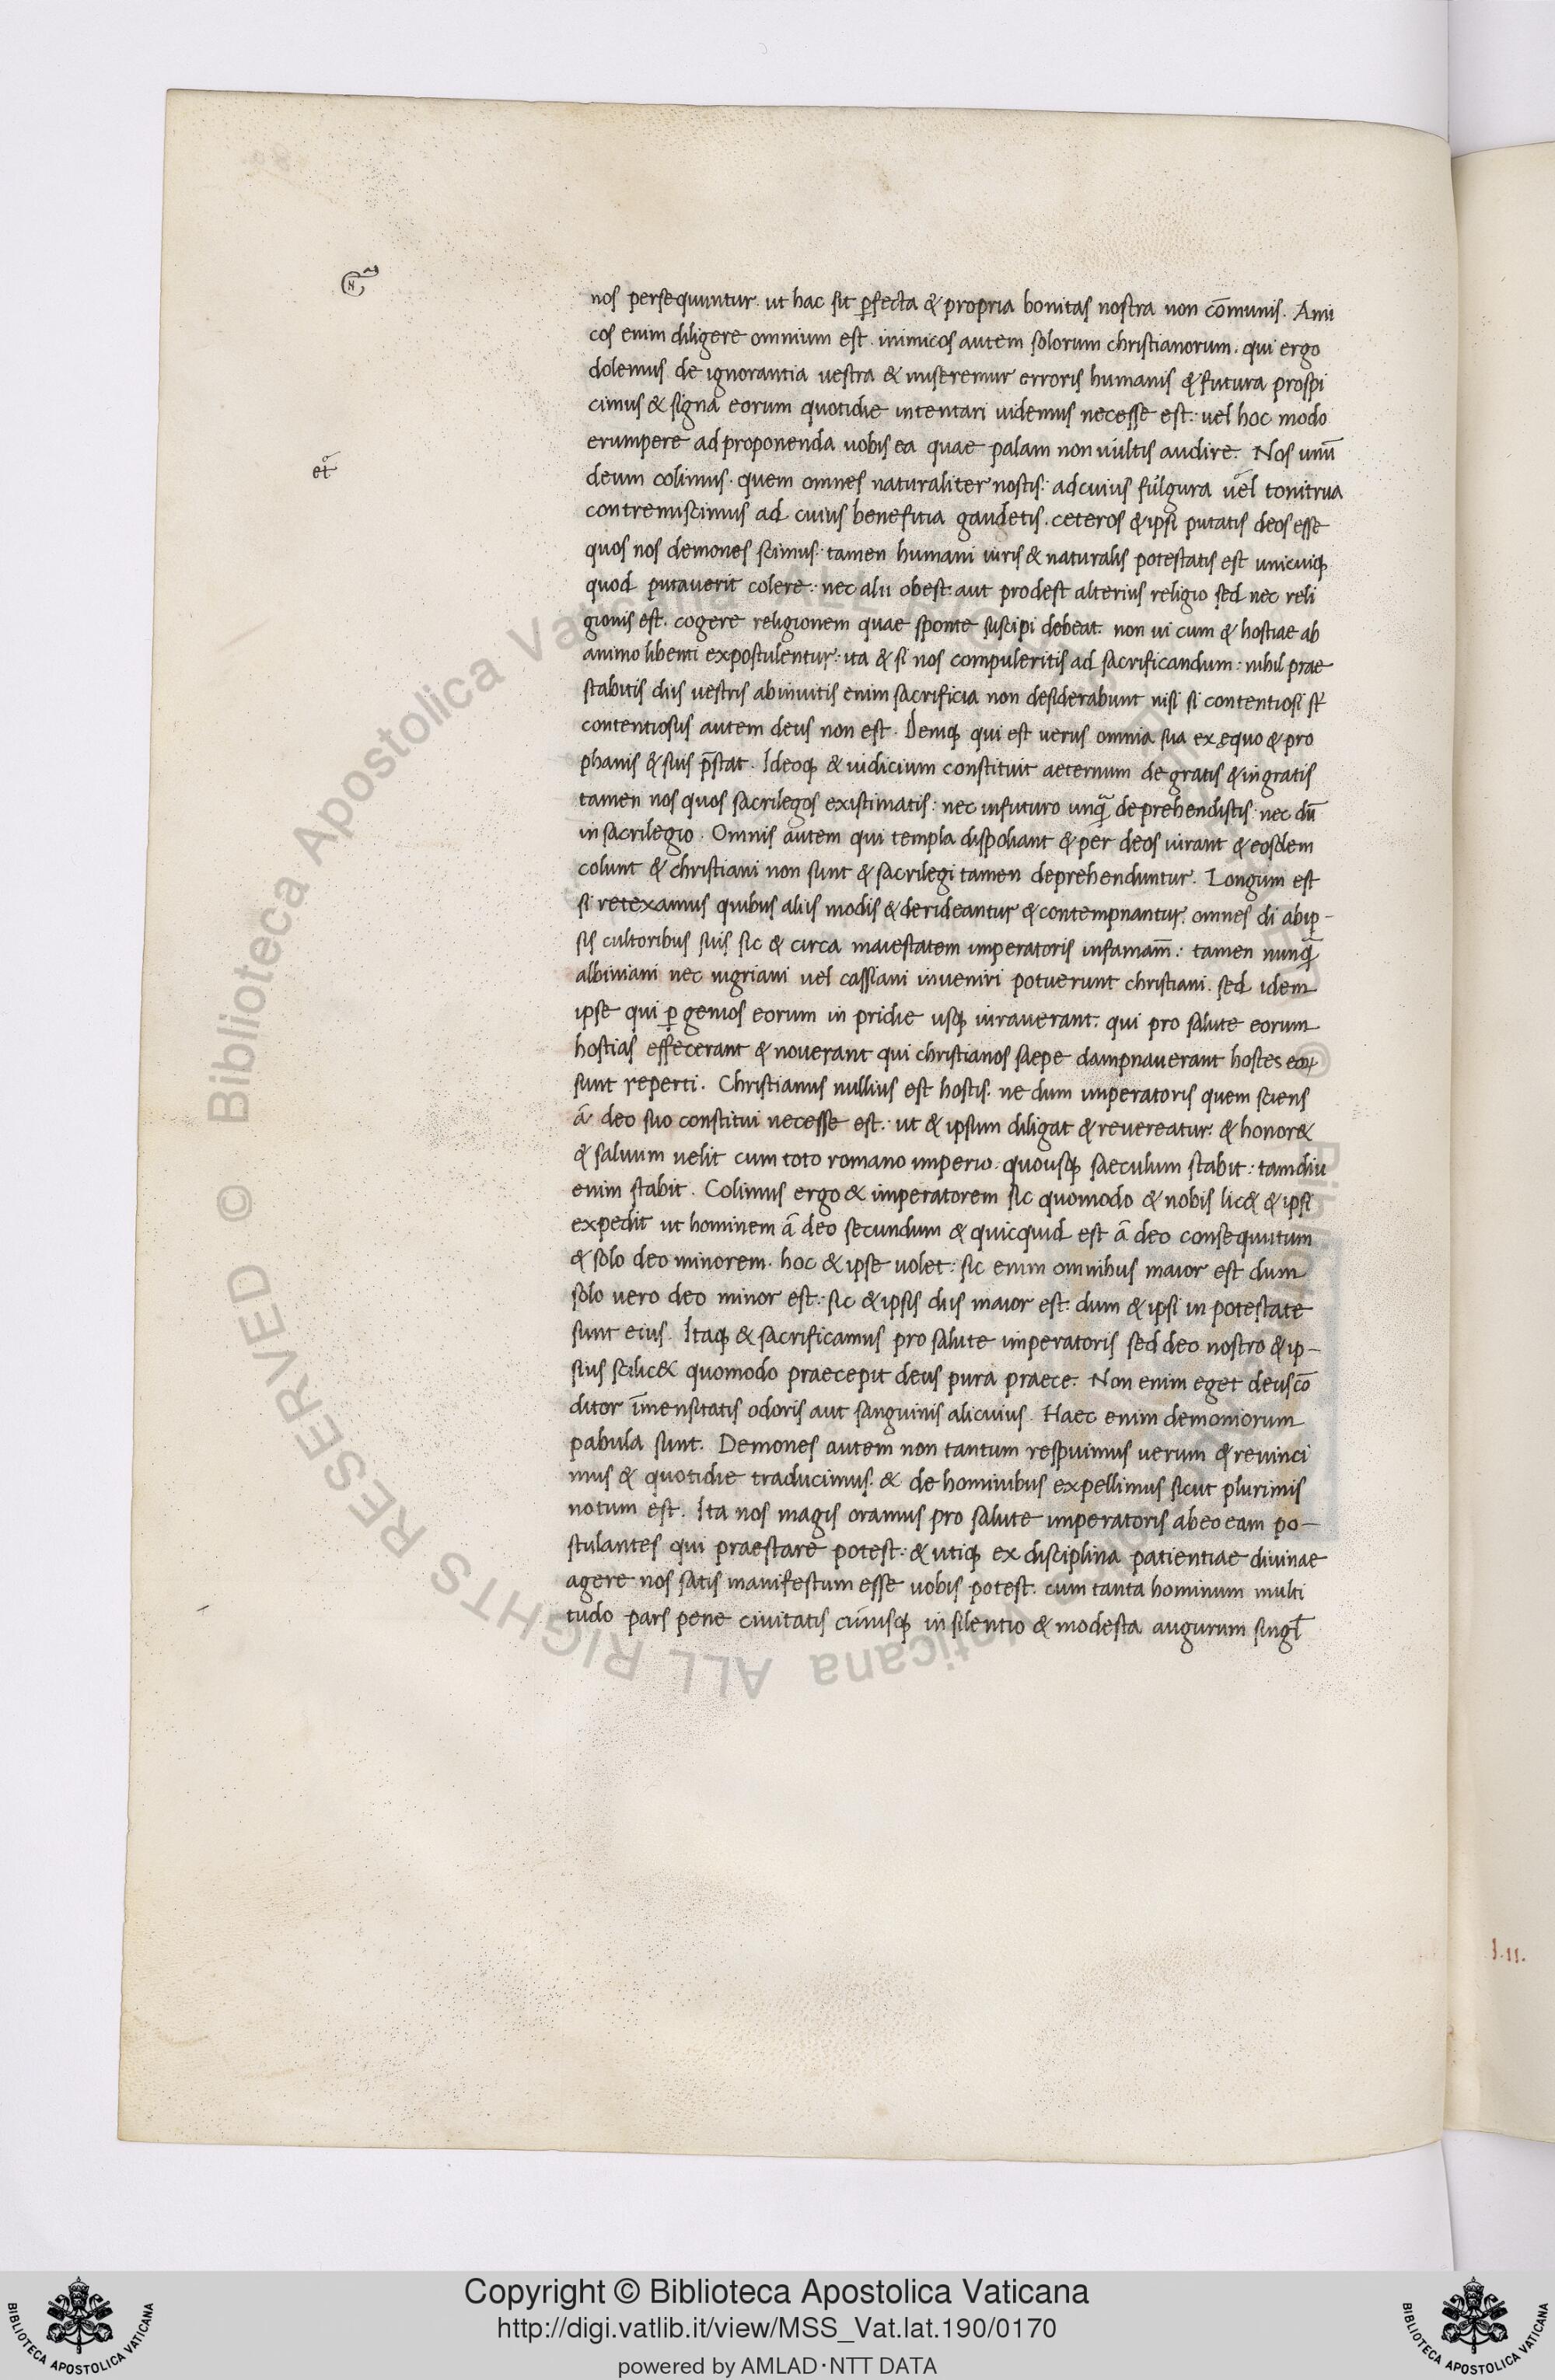 nos persequuntur. ut hac sit ꝑfecta & propria bonitas nostra non cōmunis. Ami
cos enim diligere omnium est. inimicos autem solorum christianorum. qui ergo
dolemus de ignorantia uestra & miseremur erroris humanis & futura prospi
cimus & signa eorum quotidie intentari uidemus necesse est: uel hoc modo
erumpere ad proponenda uobis ea quae palam non uultis audire. Nos unū
et
deum colimus. quem omnes naturaliter nostis: ad cuius fulgura uel tonitrua
contremiscimus ad cuius benefitia gaudetis. ceteros & ipsi putatis deos esse
quos nos demones scimus: tamen humani iuris & naturalis potestatis est unicuiqꝫ
quod putauerit colere: nec alii obest: aut prodest alterius religio sed nec reli
gionis est. cogere religionem quae sponte suscipi debeat. non ui cum & hostiae ab
animo libenti expostulentur: ita & si nos compuleritis ad sacrificandum: nihil prae
stabitis diis uestris ab inuitis enim sacrificia non desiderabunt nisi si contentiosi sт̄
contentiosus autem deus non est. Deniqꝫ qui est uerus omnia sua ex equo & pro
phanis & suis p̄stat. Ideoqꝫ & iudicium constituit aeternum de gratis & ingratis
tamen nos quos sacrilegos existimatis: nec in futuro unq̄ deprehendistis: nec dū
in sacrilegio. Omnis autem qui templa dispoliant & per deos iurant & eosdem
colunt & christiani non sunt & sacrilegi tamen deprehenduntur. Longum est
si retexamus quibus aliis modis & derideantur & contempnantur. omnes di ab ip-
sis cultoribus suis sic & circa maiestatem imperatoris infamam̄: tamen nunq̄
albiniani nec nigriani uel cassiani inueniri potuerunt christiani. sed idem
ipse qui ꝑ genios eorum in pridie usqꝫ iurauerant. qui pro salute eorum
hostias effecerant & nouerant qui christianos saepe dampnauerant hostes eoꝝ
sunt reperti. Christianus nullius est hostis. ne dum imperatoris quem sciens
á deo suo constitui necesse est: ut & ipsum diligat & reuereatur. & honor&
& saluum uelit cum toto romano imperio. quousqꝫ saeculum stabit: tamdiu
enim stabit. Colimus ergo & imperatorem sic quomodo & nobis lic& & ipsi
expedit ut hominem á deo secundum & quicquid est á deo consequutum
& solo deo minorem. hoc & ipse uolet: sic enim omnibus maior est dum
solo uero deo minor est: sic & ipsis diis maior est: dum & ipsi in potestate
sunt eius. Itaqꝫ & sacrificamus pro salute imperatoris sed deo nostro & ip-
sius scilic& quomodo praecepit deus pura praece. Non enim eget deus cō
ditor īmensitatis odoris aut sanguinis alicuius. Haec enim demoniorum
pabula sunt. Demones autem non tantum respuimus uerum & reuinci
mus & quotidie traducimus. & de hominibus expellimus sicut plurimis
notum est. Ita nos magis oramus pro salute imperatoris ab eo eam po-
stulantes qui praestare potest: & utiqꝫ ex disciplina patientiae diuinae
agere nos satis manifestum esse uobis potest. cum tanta hominum multi
tudo pars pene ciuitatis cuiusqꝫ in silentio & modesta augurum singł
I.II.
© Biblioteca Apostolica Vaticana ALL RIGHTS RESERVED
Copyright © Biblioteca Apostolica Vaticana
http://digi.vatlib.it/view/MSS_Vat.lat.190/0170
powered by AMLAD·NTT DATA
BIBLIOTECA APOSTOLICA VATICANA
BIBLIOTECA APOSTOLICA VATICANA